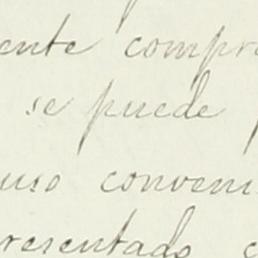 ente compr
se puede
uso conveni
resentado